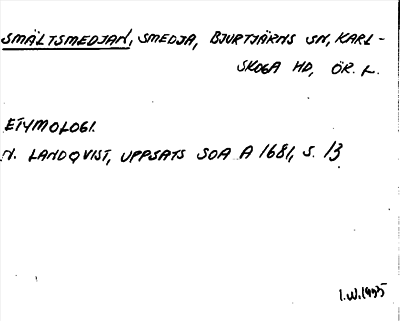 SMÄLTSMEDJAN, SMEDJA, BJURTJÄRNS SN, KARL-
SKOGA HD, ÖR. L.
ETYMOLOGI.
N. LANDQVIST, UPPSATS SOA A 1681, S. 13
I.W. 1995